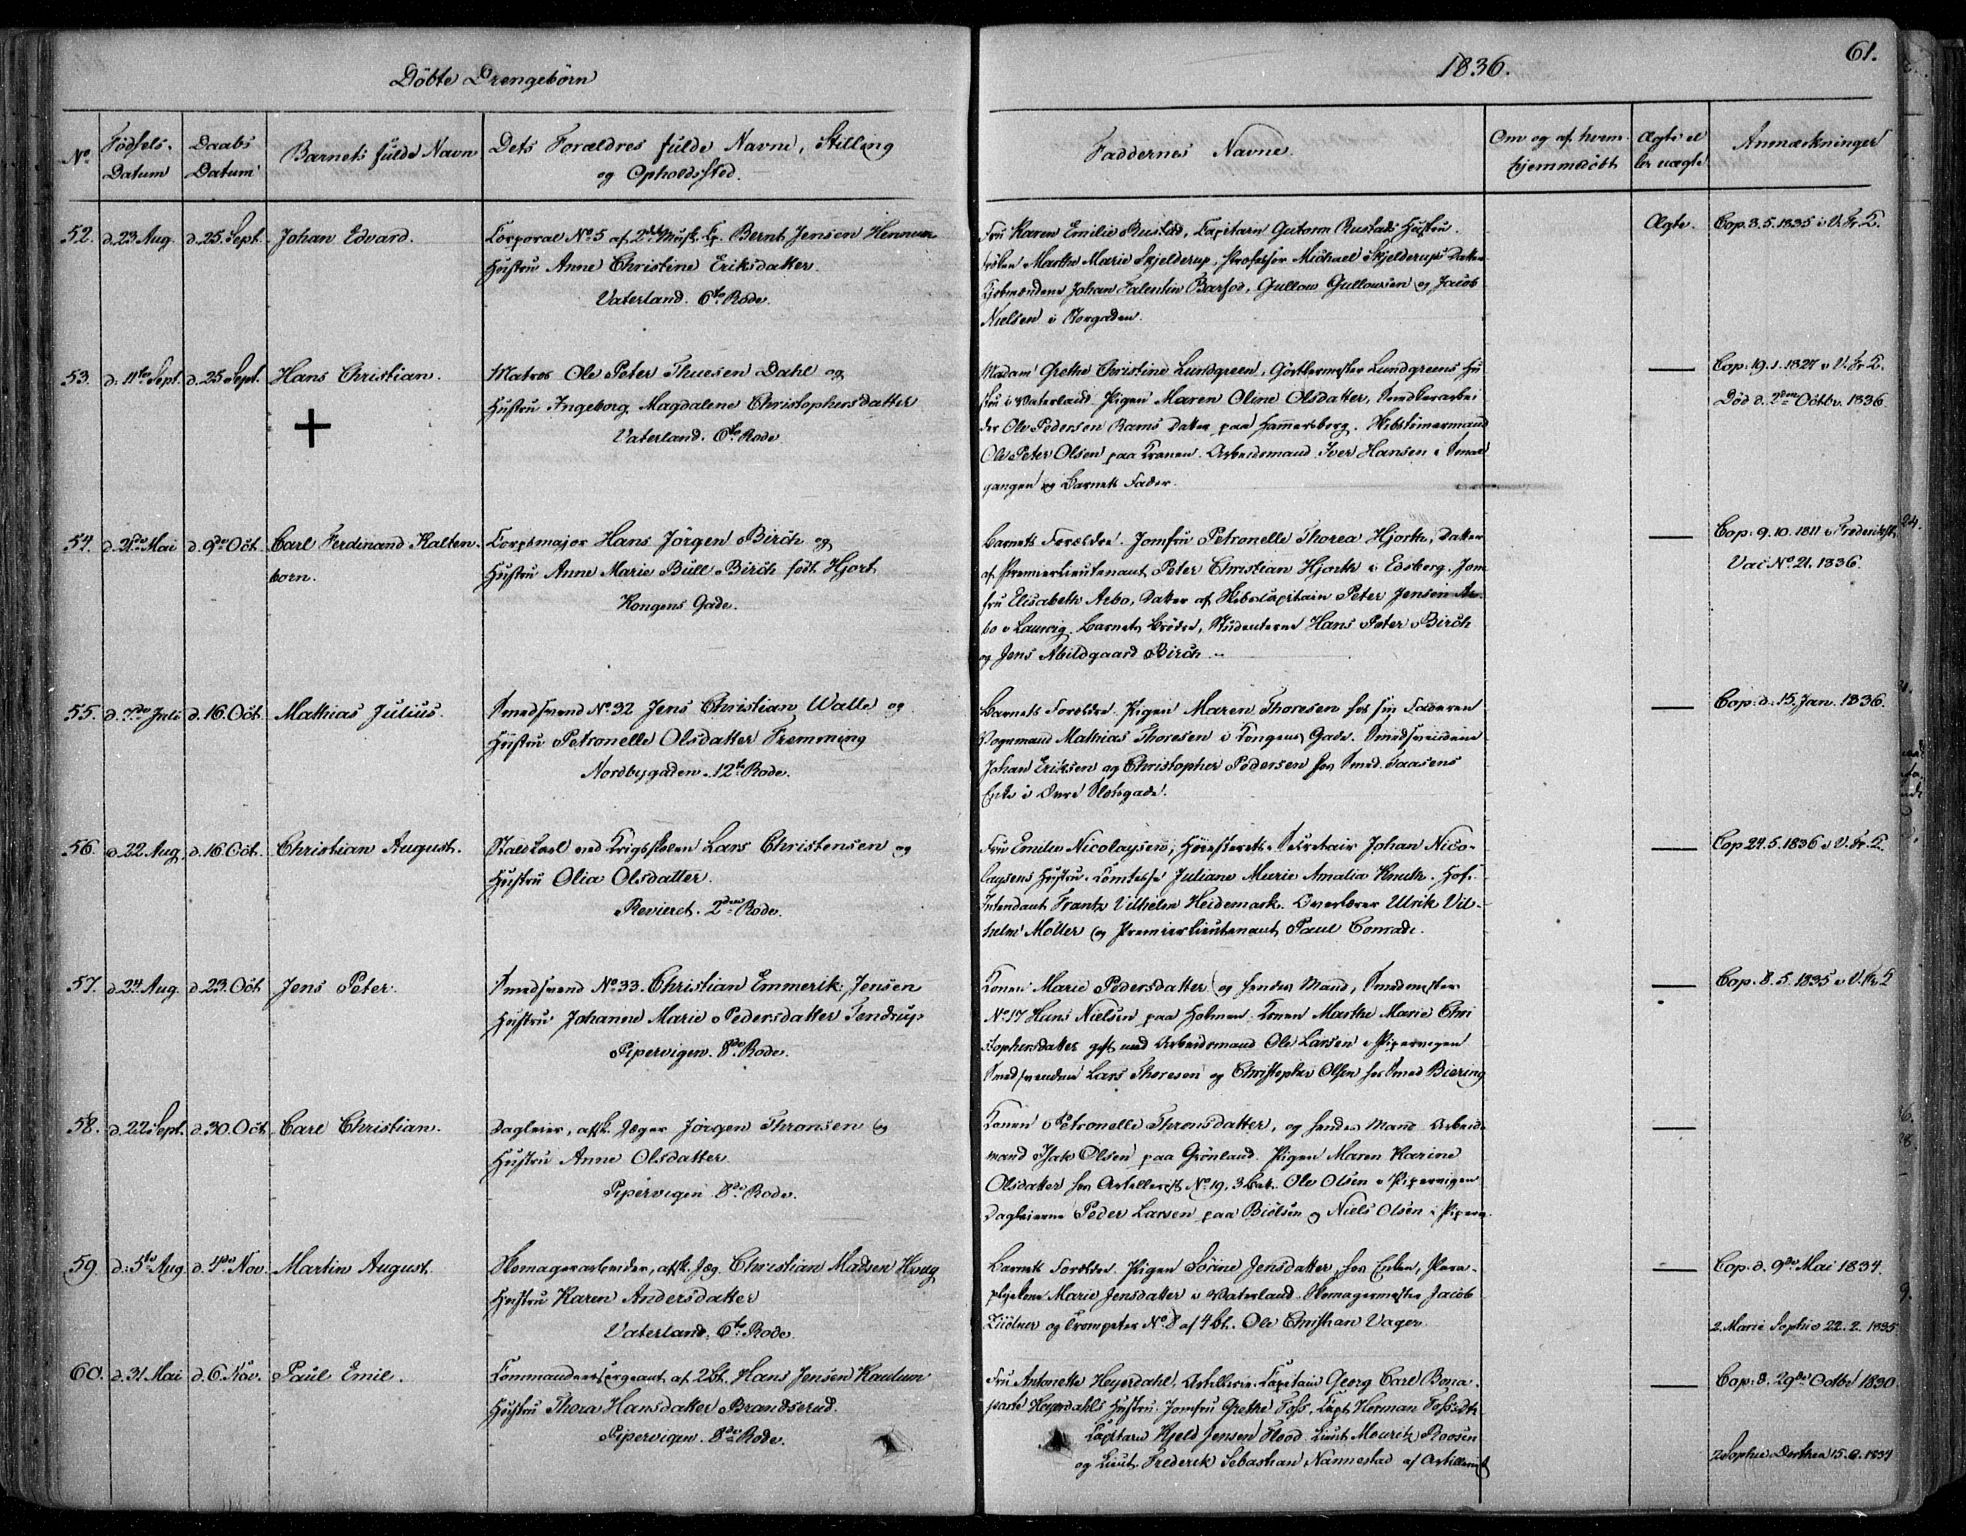 Döbte Drengebörn
1836.
61.
No
Födsels-Datum
Daabs Datum
Barnets fulde Navn
Dets Forældres fulde Navne, Stilling
og Opholdssted.
Faddernes Navne.
Om og af hvem
hjemmedöbt
Ægte el
ler uægte
Anmærkninger
52. d. 23 Aug. d. 25. Sept. Johan Edvard.
Corporal No 5 af 2det Musk. Cp. Bernt Jensen Hennum
Hustru Anne Christine Eriksdatter.
Vaterland. 6te Rode.
Fru Karen Emilie Rustad, Capitain Gutorm Rustads Hustru.
Fröken Marthe Marie Skjelderup, Professor Michael Skjelderups Datter
Kjöbmændene Johan Falentin Barfod, Gullow Gullowsen og Jacob
Nielsen i Storgaden.
Ægte.
Cop. 3. 5. 1835 i V. Fr. K.
53. d. 11te Sept. d. 25 Sept. Hans Christian.
Matros Ole Peter Thuesen Dahl og
Hustru Ingeborg Magdalene Christophersdatter
Vaterland. 6te Rode
Madam Grethe Christine Lundgreen, Görtlermester Lundgreens Hu
stru i Vaterland. Pigen Maren Oline Olsdatter, Snedkerarbei
der Ole Pedersen Rams Datter paa Hammersberg. Skibstömermand
Ole Peter Olsen paa Kranen. Arbeidsmand Iver Hansen i Smal
gangen og Barnets Fader.
Cop. 19. 1. 1827 i V. Fr. K.
Död d. 2den Octbr. 1836
54. d. 31te Mai d. 9de Oct. Carl Ferdinand Kalten
born.
Corpsmajor Hans Jörgen Birch og
Hustru Anne Marie Bull Birch födt Hjort
Kongens Gade.
Barnets Forældre. Jomfru Petronelle Thorea Hjorth, Datter
af Premierlieutenant Peter Christian Hjorth i Edsberg. Jom
fru Elisabeth Arbo, Datter af Skibscapitain Peter Jensen Ar
bo i Laurvig. Barnets Brödre, Studenterne Hans Peter Birch
og Jens Abildgaard Birch
Cop. 9. 10. 1811 i Frederikst.
Vac No. 21. 1836.
55. d. 7de Juli d. 16. Oct. Mathias Julius.
Smedsvend No. 32 Jens Christian Walle og
Hustru Petronelle Olsdatter Fremming
Nordbygaden. 12te Rode.
Barnets Forældre. Pigen Maren Thoresen hos sin Faderen
Vognmand Mathias Thoresen i Kongens Gade. Smedsvendene
Johan Eriksen og Christopher Pedersen hos Smed Faasens
Enke i Övre Slotsgade.
Cop. d. 15. Jan. 1836.
56. d. 22 Aug. d. 16 Oct. Christian August.
Staldkarl ved Krigsskolen Lars Christensen og
Hustru Olia Olsdatter.
Revieret. 2den Rode.
Fru Emilie Nicolaysen, Höiesterets-Secretair Johan Nico-
laysens Hustru. Comtesse Juliane Marie Amalia Knuth. Hof-
Intendant Frantz Vilhelm Heidemark. Overlærer Ulrik Vil-
helm Möller og Premierlieutenant Paul Conradi.
Cop 24. 5. 1836 i V. Fr. K.
57. d. 24 Aug. d. 23. Oct. Jens Peter.
Smedsvend No. 33. Christian Emmerik Jensen
Hustru Johanne Marie Pedersdatter Tendrup
Pipervigen. 8de Rode.
Konen Marie Pedersdatter og hendes Mand, Smedmester
No 17 Hans Nielsen paa Holmen. Konen Marthe Marie Chri
stophersdatter gift med Arbeidsmand Ole Larsen i Pipervigen
Smedsvendene Lars Thoresen og Christopher Olsen hos Smed Biering
Cop. 8. 5. 1835 i V. Fr. K
58. d. 22 Sept. d. 30. Oct. Carl Christian.
Dagleier, afsk. Jæger Jörgen Thronsen og
Hustru Anne Olsdatter
Pipervigen 8de Rode.
Konen Petronelle Thronsdatter, og hendes Mand Arbeids
mand Isak Olsen paa Grönland. Pigen Maren Karine
Olsdatter hos Artillerist No. 19. 3 Bat. Ole Olsen i Pipervigen
Dagleierne Peder Larsen paa Biölsen og Niels Olsen i Piperv.
59. d. 5te Aug. d. 1ste Nov. Martin August.
Skomagerarbeider, afsk. Jæg. Christian Madsen Haug
Hustru Karen Andersdatter
Vaterland. 6te Rode.
Barnets Forældre. Pigen Sörine Jensdatter, hos Enken, Para-
Marie Jensdatter i Vaterland. Skomagermester Jacob
Züölner og Trompeter No. 8 af 4 Bt. Ole Christian Vager.
Cop. d. 9de Mai 1834.
2. Marie Sophie 22. 2. 1835
60. d. 31 Mai d. 6 Nov. Paul Emil.
Commandeersergeant af 2 Bt. Hans Jensen Kaulum
Hustru Thora Hansdatter Brandserud.
Pipervigen. 8de Rode.
Fru Antonette Heyerdahl, Artillerie-Capitain Georg Carl Bona
parte Heyerdahls Hustru. Jomfru Grethe Foss, Capt. Herman Foss's Dtr.
Capitain Kjeld Jensen Flood. Lieut. Mouritz Roosen
og Lieut. Frederik Sebastian Nannestad af Artilleriet
Cop. d. 29de Octbr 1830.
2 Sophie Dorthea 15. 6. 1834